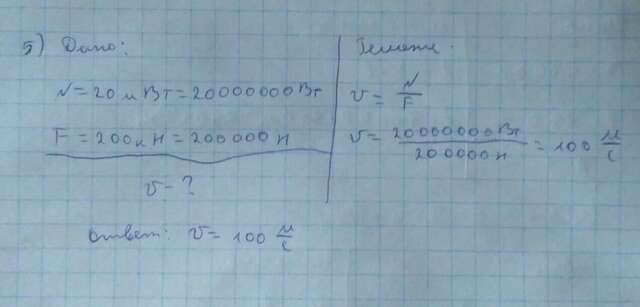 5) Дано:
N = 20 м Вт = 20000000 Вт
F = 200к Н = 200000 Н
v - ?
Решение.
v = N/F
v = 20000000 Вт/200000 Н = 100 м/с
Ответ: v = 100 м/с